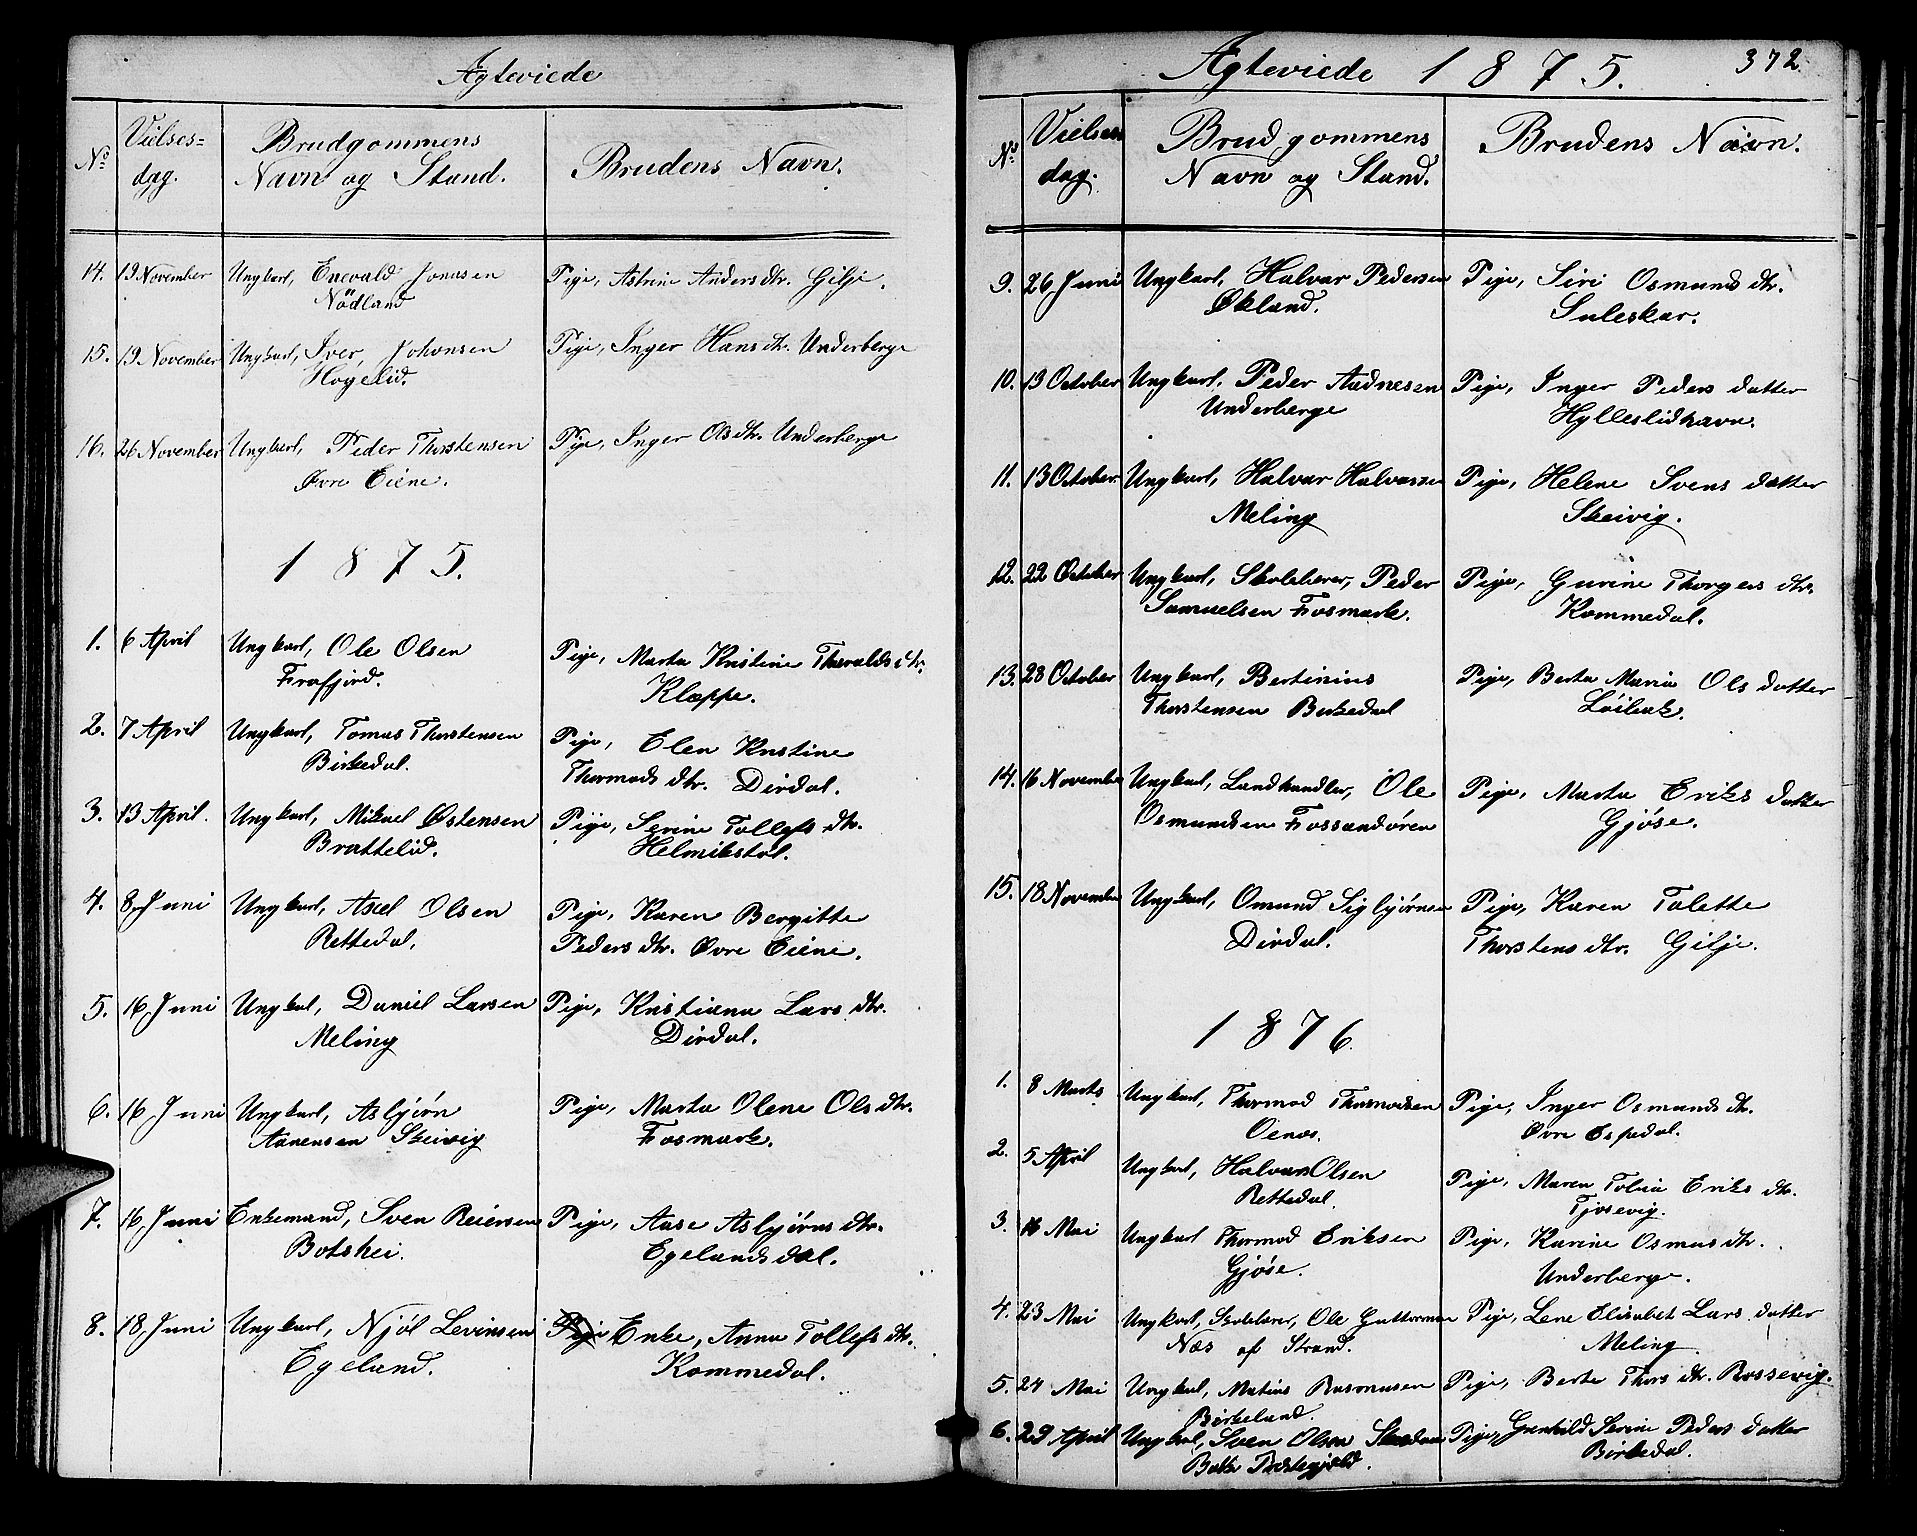 Ægteviede
No Vielses=
dag. Brudgommens
Navn og Stand. Brudens Navn.
14. 19 November Ungkarl, Enevald Jonasen
Nödland Pige, Astrine Andersdtr. Gilje.
15. 19 November Ungkarl, Iver, Johansen
Høgelid. Pige, Inger Hansdtr. Underberge
16. 26 November Ungkarl, Peder Thorstensen
Øvre Eiene. Pige, Inger Olsdtr. Underberge
1875.
1. 6 April Ungkarl, Ole Olsen
Frafjord. Pige, Marta Kristine Thoraldsdtr.
Klæppe.
2. 7 April Ungkarl, Tomas Thorstensen
Birkedal. Pige, Elen Kristine
Thormodsdtr. Dirdal.
3. 13 April. Ungkarl, Mikael Østensen
Brattelid. Pige, Serine Tollefsdtr.
Helmikstøl.
4. 8, Juni Ungkarl, Axel Olsen
Rettedal. Pige, Karen Bergitte
Pedersdtr. Øvre Eiene.
5. 16, Juni Ungkal, Daniel Larsen
Meling Pige, Kristiana Larsdtr.
Dirdal.
6. 16 Juni Ungkarl, Asbjørn
Aanensen Skeivig Pige, Marta Olene Olsdtr.
Fosmark.
7. 16, Juni Enkemand, Sven Reiersen
Botshei. Pige, Aase Asbjørnsdtr.
Egelandsdal.
8. 18, Juni Ungkarl, Njøl Levinsen
Egeland. Pige Enke, Anna Tollefsdtr.
Kommedal.
Ægteviede 1875. 372.
No Vielses
dag. Brudgommens
Navn og Stand. Brudens Navn.
9. 26 Juni Ungkarl, Halvar Pedersen
Økland. Pige, Siri Osmundsdtr.
Suleskar.
10. 13 October Ungkarl, Peder Aadnesen
Underberge Pige, Inger Peders datter
Hylleslidhavn.
11. 13 October. Ungkarl, Halvar Halvorsen
Meling Pige, Helene Svens datter
Skeivig.
12. 22 October Ungkarl, Skolelærer, Peder
Samuelsen Fosmark. Pige, Gurine Thorgersdtr.
Kommedal.
13. 28 October Ungkarl, Bertinius
Thorstensen Birkedal Pige, Berta Maria Ols datter
14. 16 November Ungkarl, Landhandler, Ole
Osmundsen Fossandøren Pige, Marta Eriks datter
Gjøse.
15. 18 November Ungkarl, Omund Sigbjørnsen
Dirdal. Pige, Karen Talette
Thorstensdtr. Gilje.
1876.
1. 8 Marts Ungkarl, Thormod Thormodsen
Oenes. Pige, Inger Osmundsdtr.
Øvre Espedal.
2. 5 April Ungkarl, Halvar Olsen
Rettedal. Pige, Maren Tobia Eriksdtr.
Tjosevig.
3. 16 Mai Ungkarl Thormod Eriksen
Gjøse. Pige, Karine Osmusdtr.
Underberge.
4. 23 Mai Ungkarl, Skolelærer, Ole Guttormsen
Næs af Strand. Pige, Lene Elisabet Lars datter
Meling.
5. 24 Mai Ungkarl, Matius Rasmussen
Birkeland. Pige, Berta Thorsdtr. Rossevig.
6. 29 April Ungkarl, Sven Olsen
Præstegjeld. Pige, Gunhild Serine Peders datter
Birkedal.